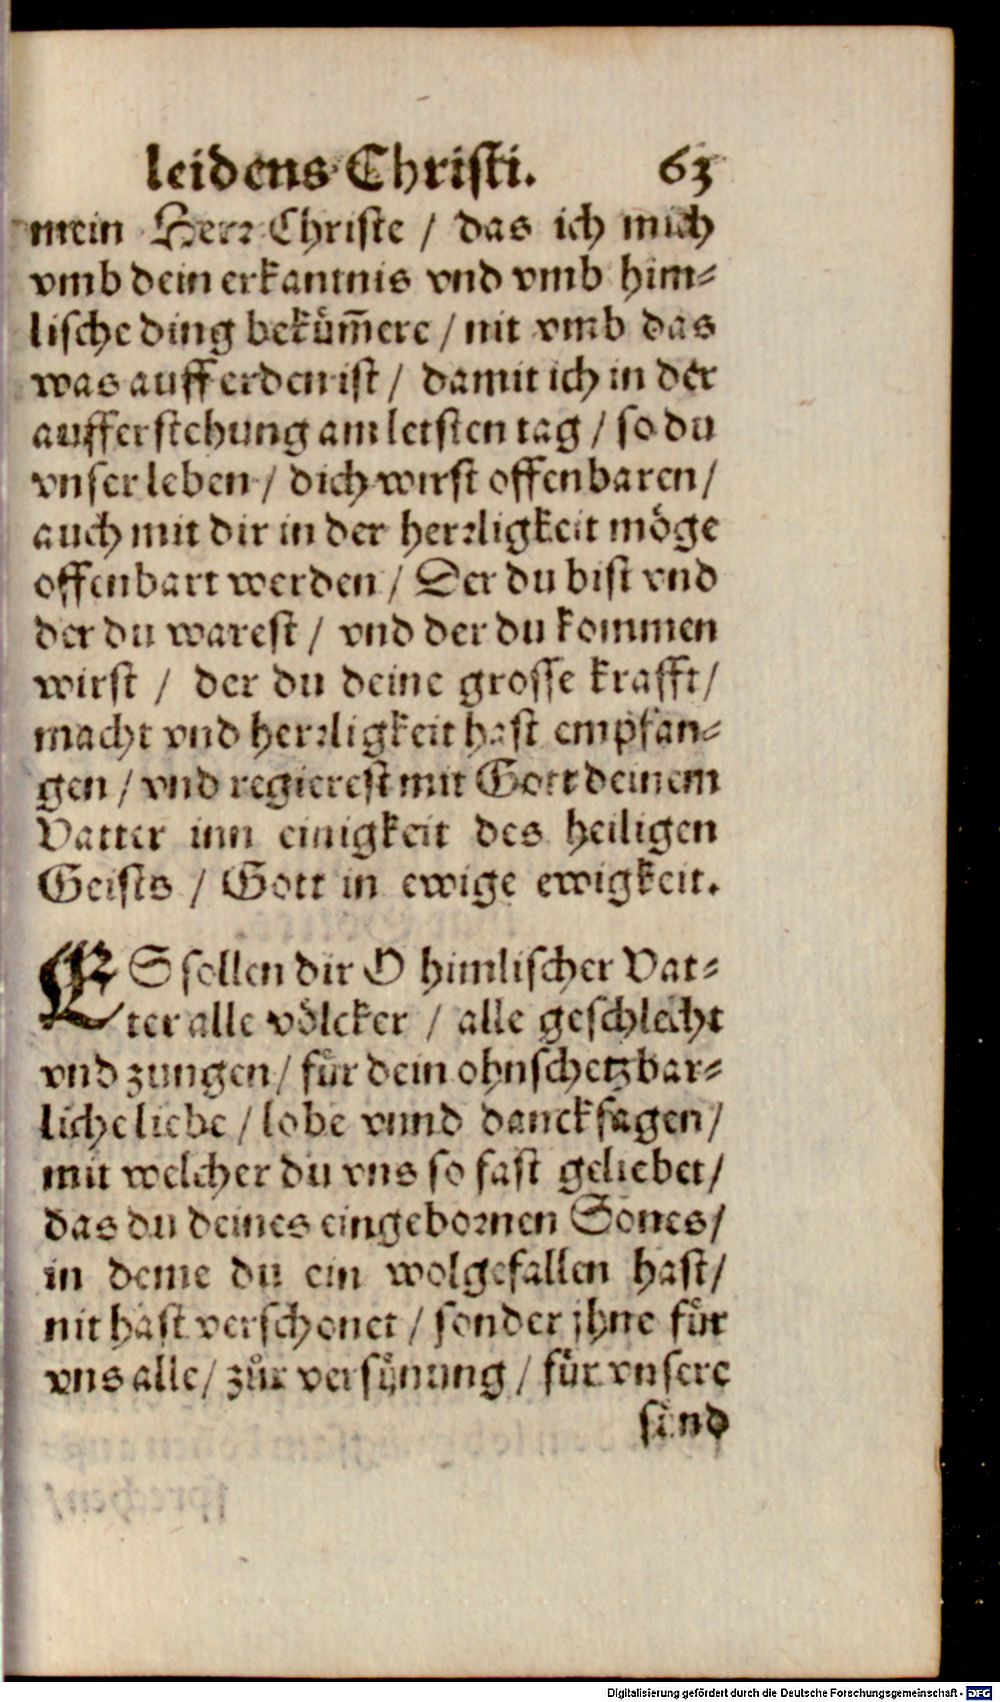 leidens Christi. 63
mein Herr Christe / das ich mich
vmb dein erkantnis vnd vmb him⸗
lische ding bekuͤm̃ere / nit vmb das
was auff erden ist / damit ich in der
aufferstehung am letsten tag / so du
vnser leben / dich wirst offenbaren /
auch mit dir in der herꝛligkeit moͤge
offenbart werden / Der du bist vnd
der du warest / vnd der du kommen
wirst / der du deine grosse krafft /
macht vnd herꝛligkeit hast empfan⸗
gen / vnd regierest mit Gott deinem
Vatter inn einigkeit des heiligen
Geists / Gott in ewige ewigkeit.
ES sollen dir O himlischer Vat⸗
ter alle voͤlcker / alle geschlecht
vnd zungen / fuͤr dein ohnschetzbar⸗
liche liebe / lobe vnnd dancksagen /
mit welcher du vns so fast geliebet /
das du deines eingeboꝛnen Sones /
in deme du ein wolgefallen hast /
nit hast verschonet / sonder jhne fuͤr
vns alle / zuͦr versuͤnung / fuͤr vnsere
suͤnd
Digitalisierung gefördert durch die Deutsche Forschungsgemeinschaft - DFG